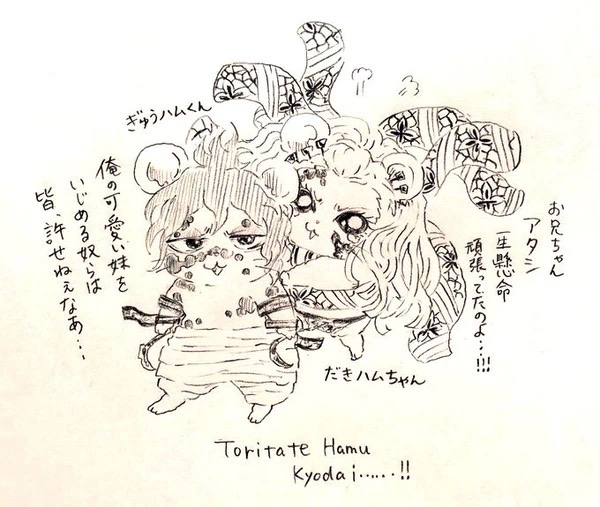 ぎゅうハムくん
俺の可愛い妹を
いじめる奴らは
皆、許せねぇなあ・・・
お兄ちゃん
アタシ
一生懸命
頑張ってたのよ・・・!!!
だきハムちゃん
Toritate Hamu
Kyodai......!!